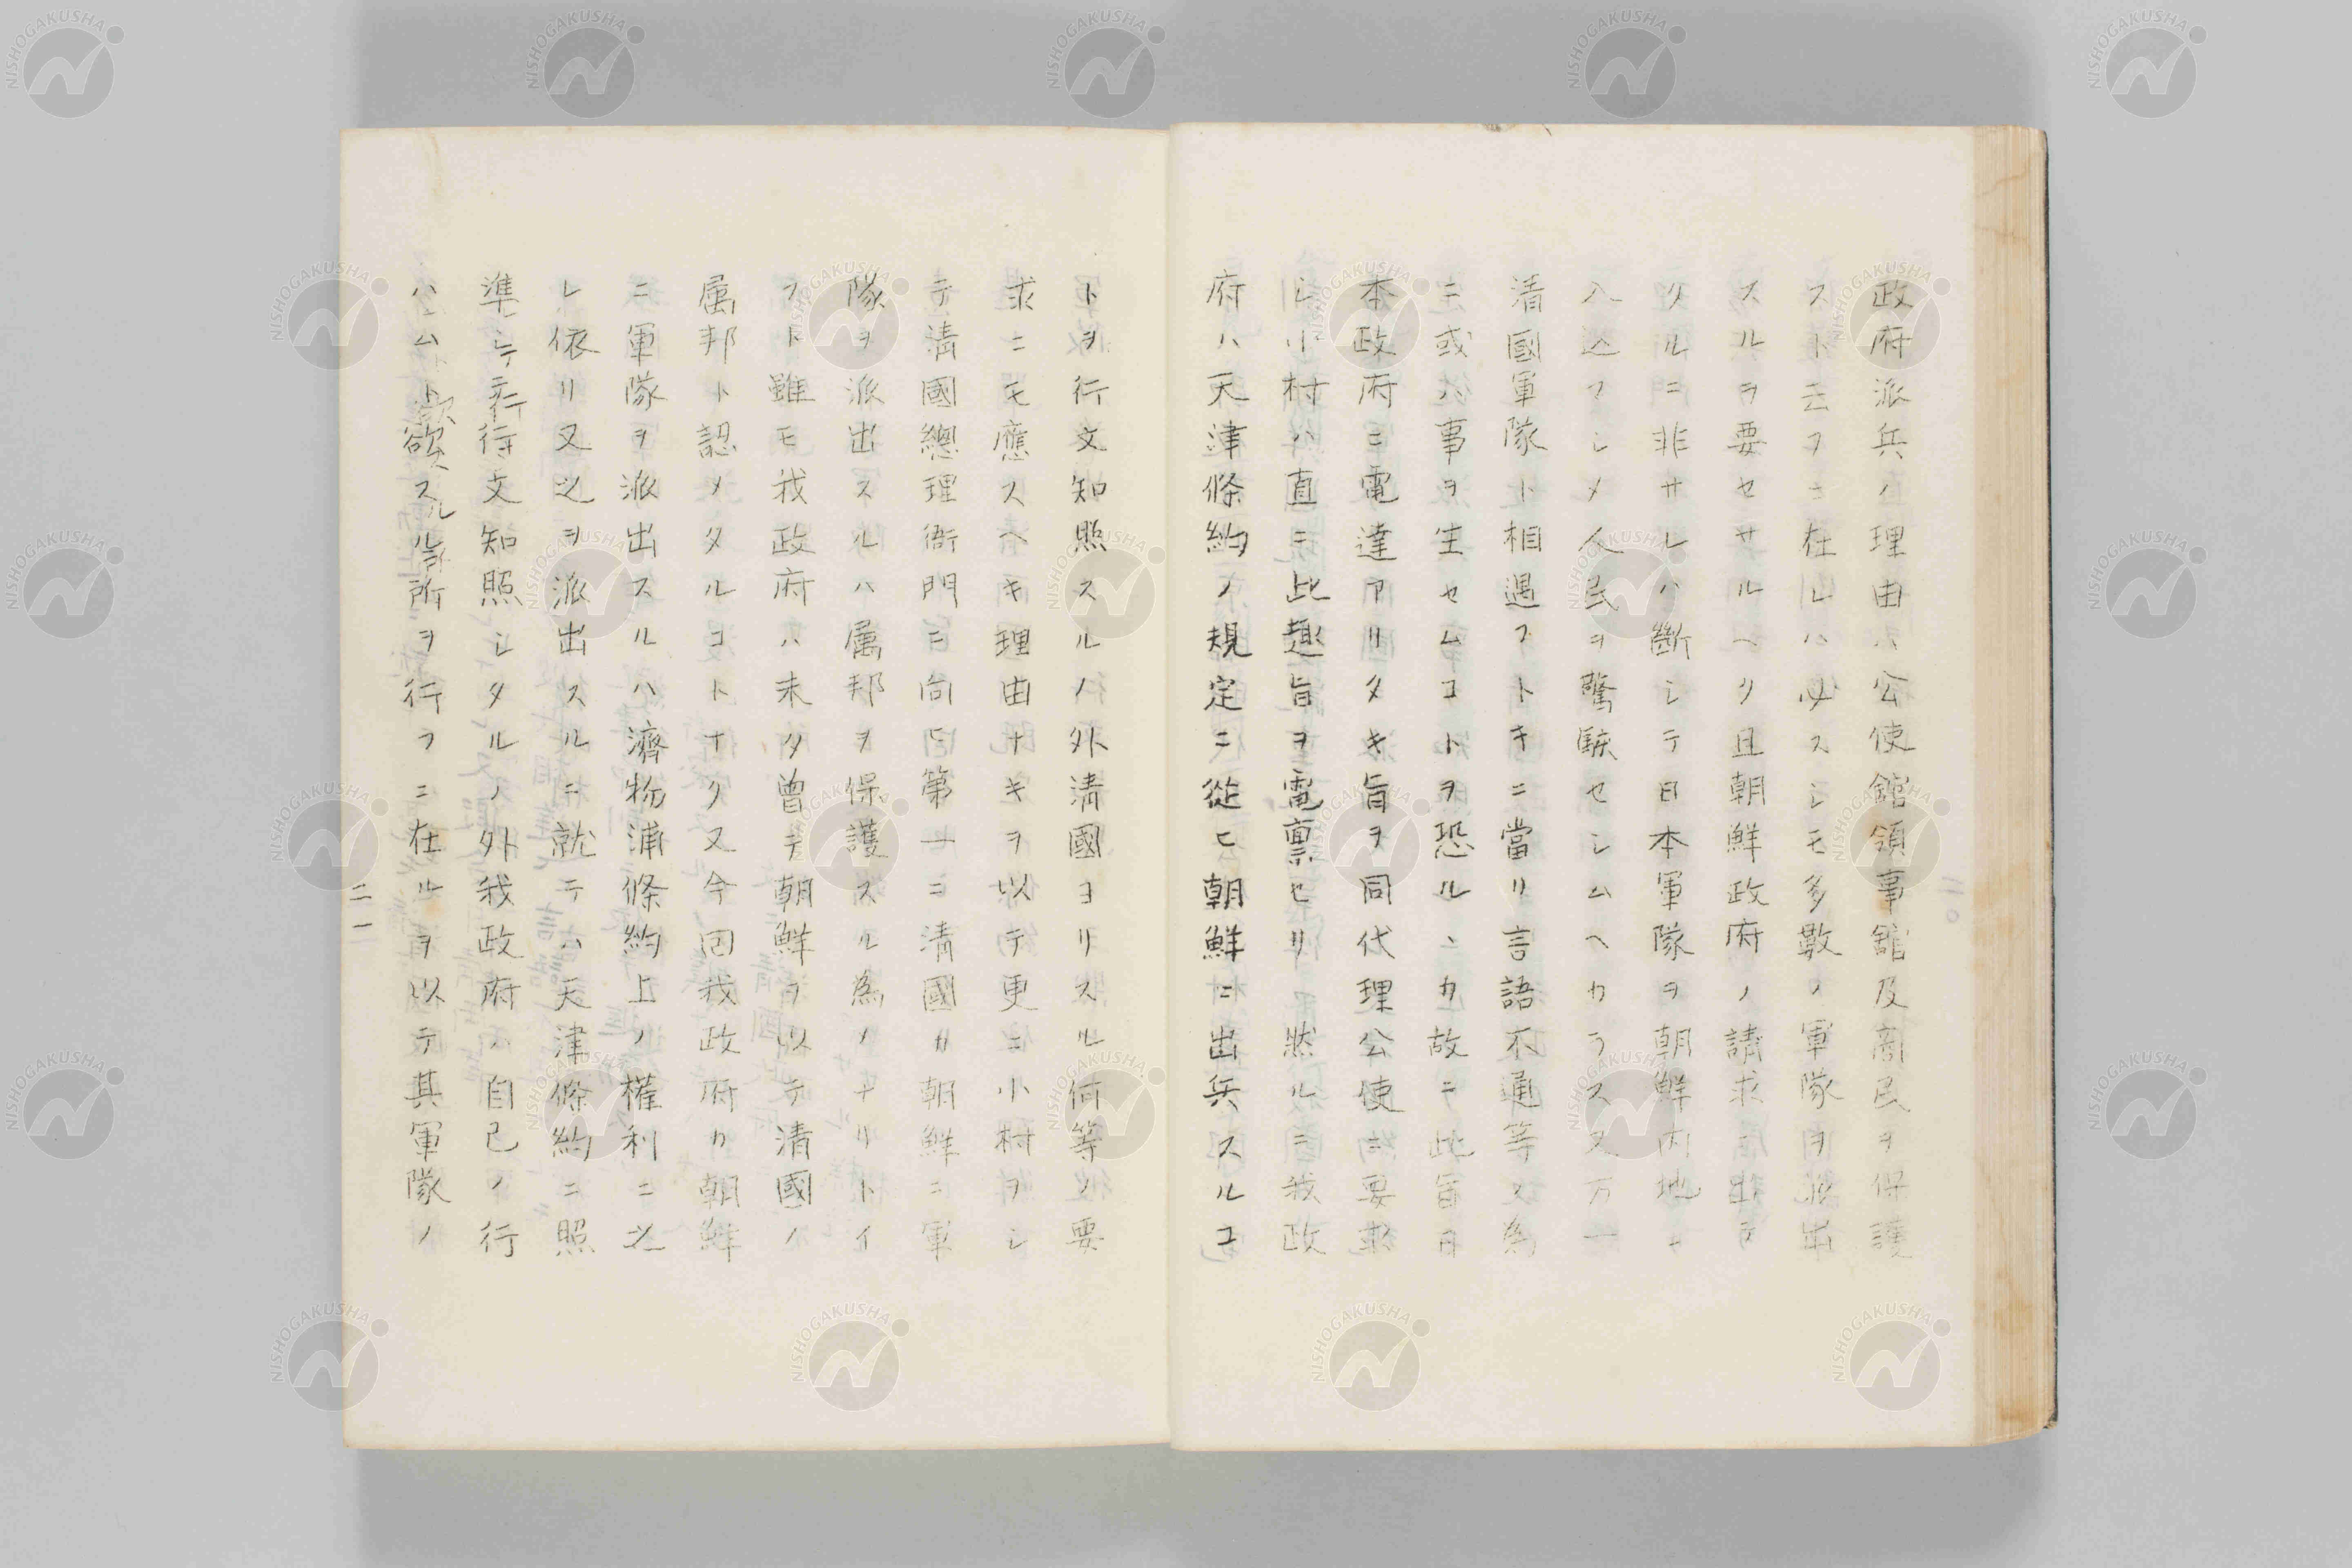 政府派兵ノ理由ハ公使館領事館及商民ヲ保護
スト云フニ在レハ必スシモ多數ノ軍隊ヲ派出
スルヲ要セサルヘク且朝鮮政府ノ請求ニ出テ
タルニ非サレハ斷シテ日本軍隊ヲ朝鮮内地ニ
入込マシメ人民ヲ驚駭セシムヘカラス又万一
清國軍隊ト相遇フトキニ當リ言語不通等ノ為
ニ或ハ事ヲ生セムコトヲ恐ルヽカ故ニ此旨日
本政府ニ電達アリタキ旨ヲ同代理公使ニ要求
シ小村ハ直ニ此趣旨ヲ電稟セリ 然ルニ我政
府ハ天津條約ノ規定ニ從ヒ朝鮮ニ出兵スルコ
トヲ行文知照スルノ外清國ヨリスル何等ノ要
求ニモ應スヘキ理由ナキヲ以テ更ニ小村ヲシ
テ清國總理衙門ニ向ヒ第一ニ清國カ朝鮮ニ軍
隊ヲ派出スルハ属邦ヲ保護スル為ノナリトイ
フト雖モ我政府ハ未タ曾テ朝鮮ヲ以テ清國ノ
属邦ト認メタルコトナク又今回我政府カ朝鮮
ニ軍隊ヲ派出スルハ濟物浦條約上ノ權利ニ之
レ依リ又之ヲ派出スルニ就テハ天津條約ニ照
準シテ行文知照シタルノ外我政府ハ自己ノ行
ハムト欲スル所ヲ行フニ在ルヲ以テ其軍隊ノ
二〇
二一
NISHOGAKUSHA